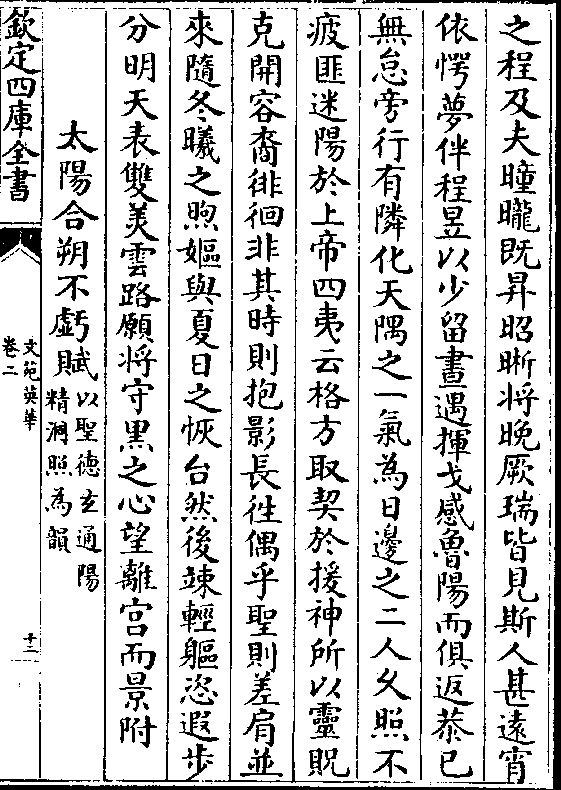 之程及夫曈曨既昇昭晰將晚厥瑞皆見斯人甚遠宵
依愕夢伴程昱以少留晝遇揮戈感魯陽而俱返恭已
無怠旁行有隣化天隅之一氣為日邊之二人久照不
疲匪迷陽於上帝四夷云格方取契於援神所以靈貺
克開容裔徘徊非其時則抱影長徃偶乎聖則差肩並
來隨冬曦之煦嫗與夏日之恢台然後竦輕軀恣遐步
分明天表雙美雲路願將守黑之心望離宮而景附
太陽合朔不虧賦以聖德玄通陽
精潤照為韻
欽定四庫全書
文苑英華
卷二
十二